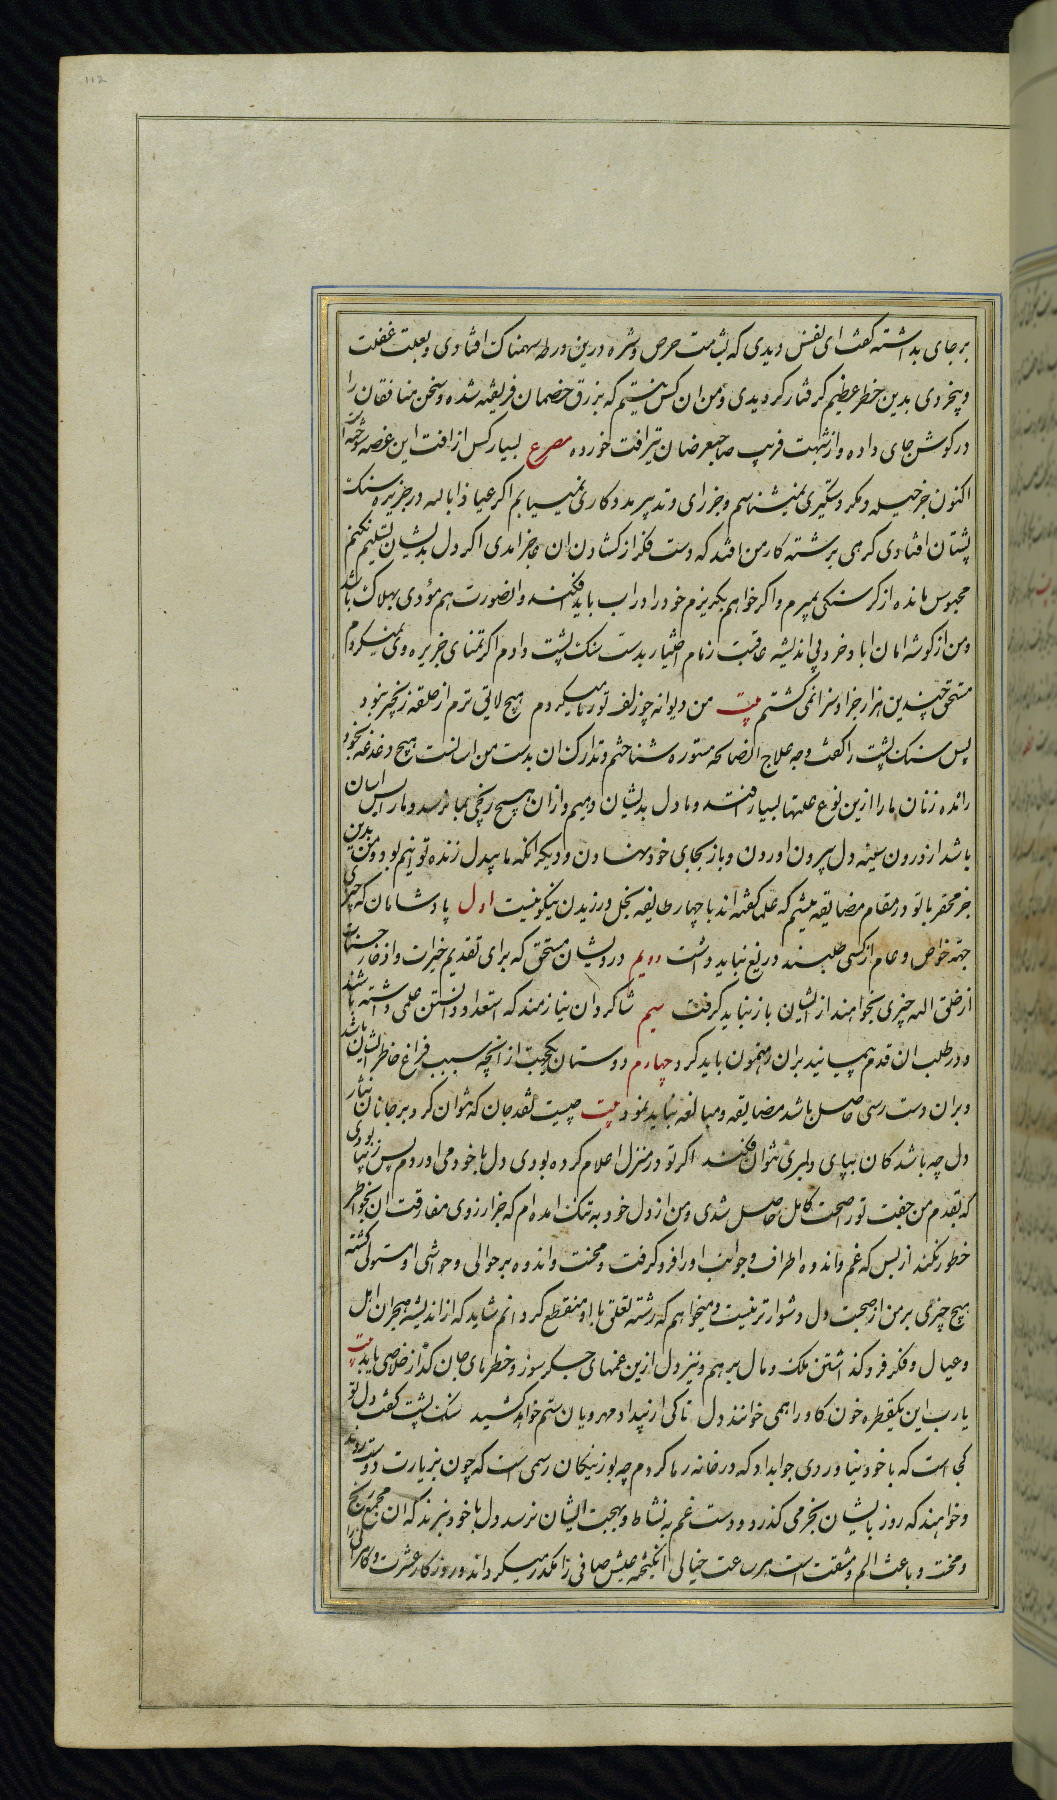 112
بر جای بداشته گفت ای نفس دیدی که بشامت حرص و شره درین ورطه سهمناک افتادی و بعلت غفلت
و بیخردی بدین خطر عظیم گرفتار کردیدی و من ان کس نیستم که بزرق خصمان فریفته شده و سخن منافقان را
در گوش جای داده و از شبهت فریب صاحبغرضان تیر افت خورده مصرع بسیار کس از افت این غصه سوخته اند
اکنون جز حیله و مکر دستگیری نمیشناسم و جز رای و تدبیر مددکاری نمییابم اگر عیاذا بالله در جزیره سنگ
پشتان افتادی گرهی بر رشته کار من افتد که دست فکر از گشادن ان عاجز امدی اگر دل بدیشان تسلیم نکنم
محبوس مانده از گرسنگی بمیرم و اگر خواهم بگریزم خود را در اب باید افکند و انصورت هم مؤدی بهلاک باشد
و من از گوشه امان اباد خرد بی اندیشه عاقبت زمام اختیار بدست سنگ پشت دادم اگر تمنای جزیره وی نمیکردم
مستحق چندین هزار جزا و سزا نمی گشتم بیت من دیوانه چو زلف تو رها میکردم هیچ لایق ترم از حلقه زنجیر نبود
پس سنگ پشت را گفت وجه علاج ان صالحه مستوره شناختم و تدارک ان بدست من اسانست هیچ دغدغه بخود
راه مده زنان ما را ازین نوع علتها بسیار افتد و ما دل بدیشان دهیم و از ان هیچ رنجی بما نرسد و ما را بس اسان
باشد از درون سینه دل بیرون اوردن و باز بجای خود نهادن و دیگر انکه ما بیدل زنده توانیم بود و من بدین
جز محقر با تو در مقام مضایقه نیستم که علما گفته اند با چهار طایفه بخل ورزیدن نیکو نیست اول پادشاهان که چیزی
جهة خواص و عام از کسی طلبند دریغ نباید داشت دویم درویشان مستحق که برای تقدیم خیرات و اذخار حسنات
از خلق الله چیزی بخواهند از ایشان باز نباید گرفت سیم شاگردان نیازمند که استعداد دانستن علمی داشته باشند
و در طلب ان قدم پیمایند بران رهنمون باید کرد چهارم دوستان یکجهت از انچه سبب فراغ خاطر ایشان باشد
و بران دست رسی حاصل باشد مضایقه و مبالغه نباید نمود بیت چیست نقد جان که نتوان کرد بر جانان نثار
دل چه باشد کان بپای دلبری نتوان فکند اگر تو در منزل اعلام کرده بودی دل با خود می اوردم پس زیبا بودی
که بقدم من جفت تو را صحت کامل حاصل شدی و من از دل خود به تنک امده ام که جز ارزوی مفارقت ان بخواطر
خطور نکند از بس که غم و اندوه اطراف و جوانب او را فرو گرفت و محنت و اندوه بر حوالی و حواشی او مستولی گشته
هیچ چیزی بر من از صحبت دل دشوارتر نیست و میخواهم که رشته تعلق با او منقطع گردانم شاید که از اندیشه هجران اهل
و عیال و فکر فرو گذاشتن ملک و مال برهم و نیز دل ازین غمهای جگر سوز و خطرهای جان گداز خلاصی یابد بیت
یا رب این یکقطره خون کاو را همی خوانند دل تا کی از بیداد مهرویان ستم خواهد کشید سنگ پشت گفت دل تو
کجا است که با خود نیاوردی جواب داد که در خانه رها کردم چه بوزنیگان رسمی است که چون بزیارت دوست روند
و خواهند که روز بایشان بخرمی گذرد و دست غم به نشاط و بهجت ایشان نرسد دل با خود نبرند که ان مجمع رنج
و محنت و باعث الم و مشقت است هر ساعت خیالی انگیخته عیش صافی را مکدر میگرداند و روزگار عشرت و کامرانی